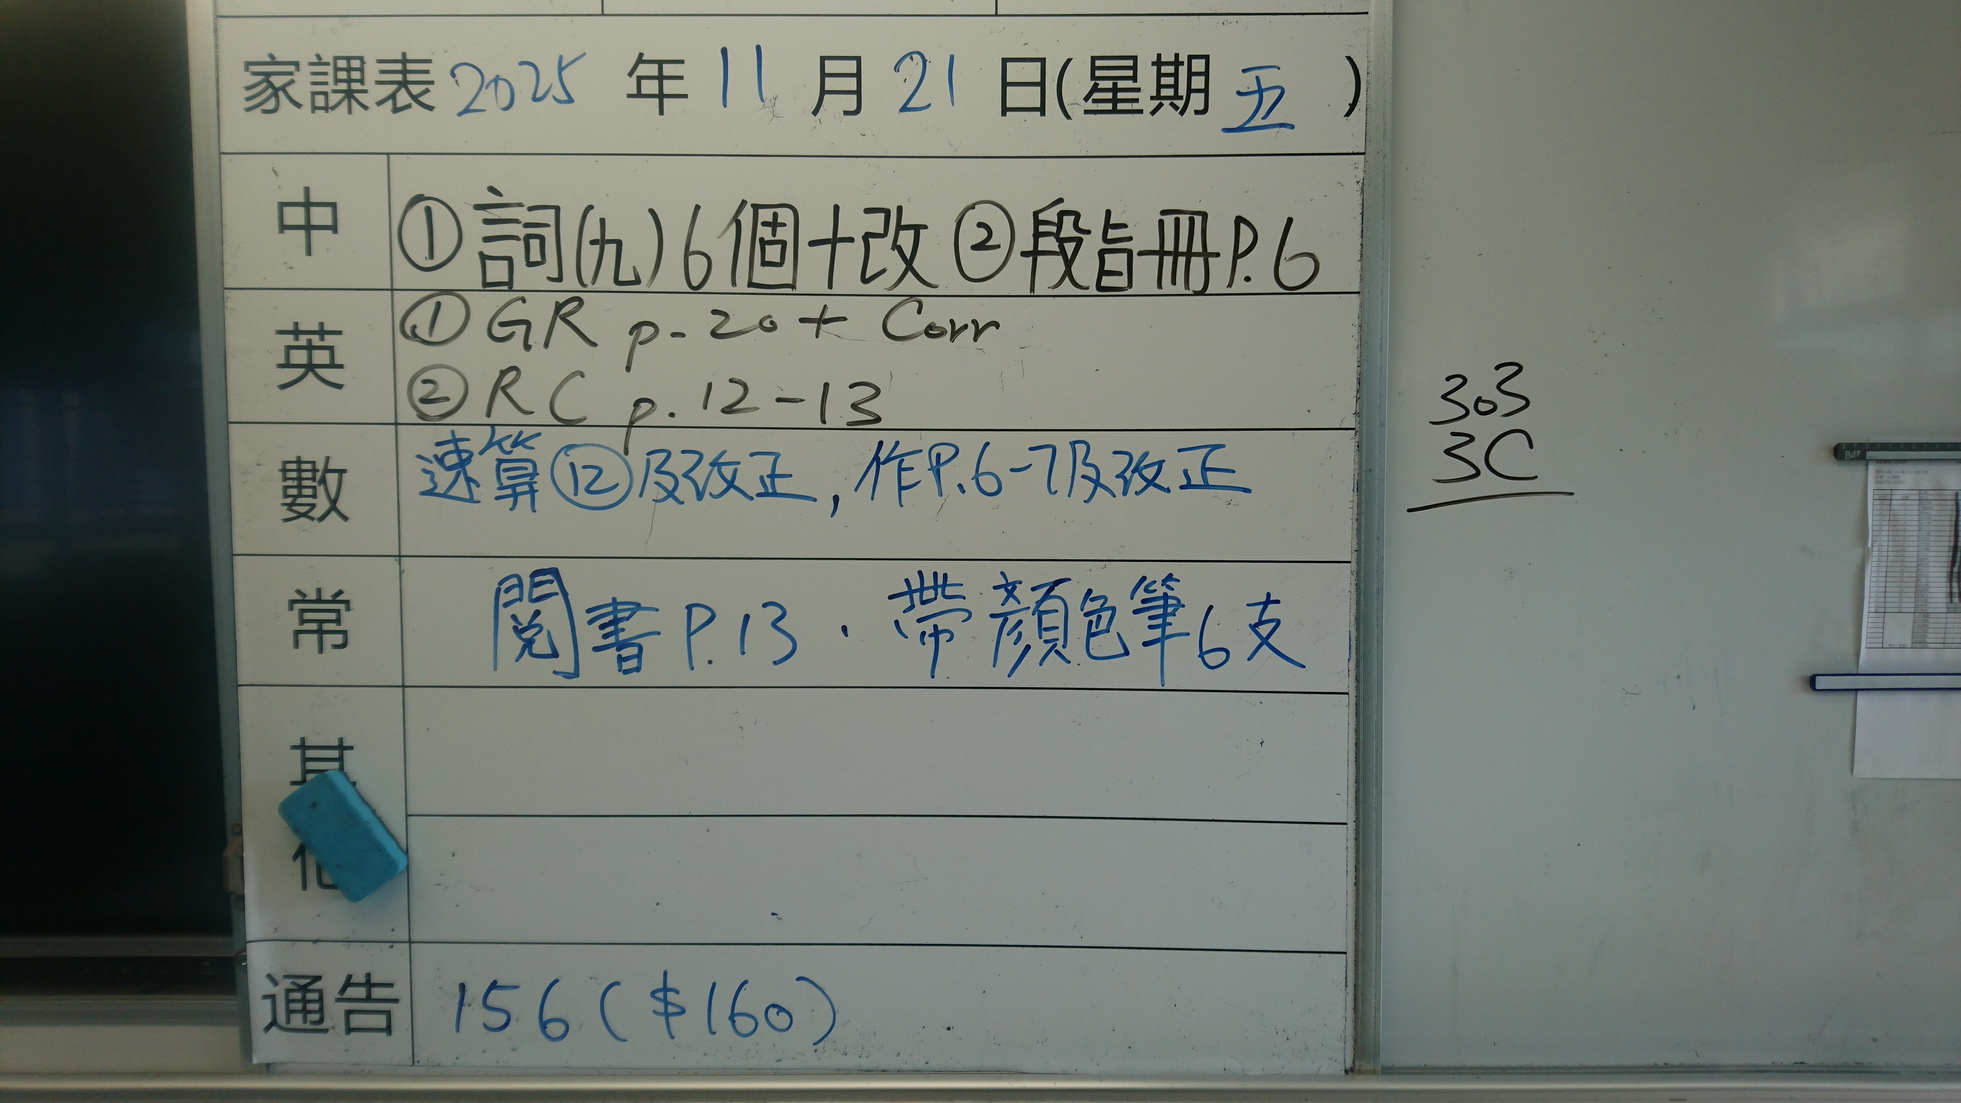 家課表 2025 年 11 月 21 日(星期 五 )
中 ①詞(九)6個+改 ②段旨冊P.6
英 ① GR p.20 + Corr
② RC p.12-13
數 速算⑫及改正, 作P.6-7及改正
常 閱書P.13．帶顏色筆6支
其他
通告 156($160)
303
3C